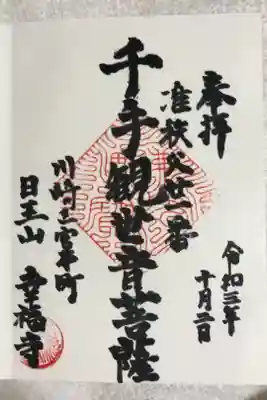 奉拝
准秩父廿一番
千手観世音菩薩
川崎士宮本町
日王山 幸福寺
令和三年
十月二日